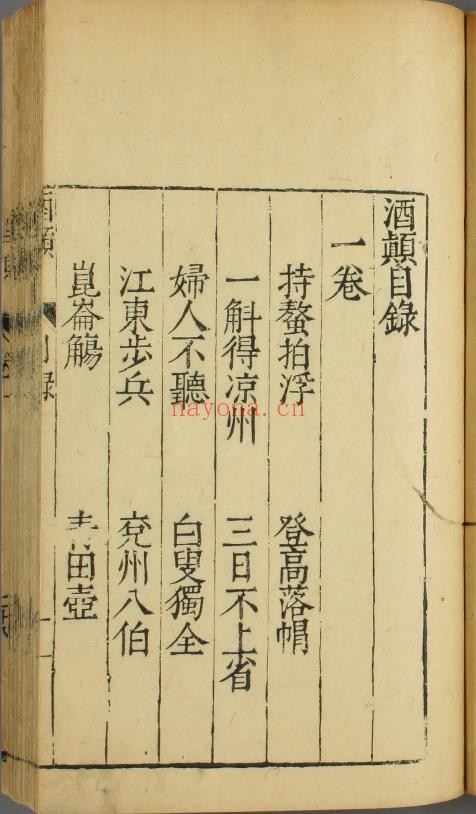 酒顛目錄
一卷
持螯拍浮 登高落帽
一斛得凉州 三日不上省
婦人不聽 白叟獨全
江東步兵 兖州八伯
崑崙觴 青田壺
酒顛 目錄
nayona.cn